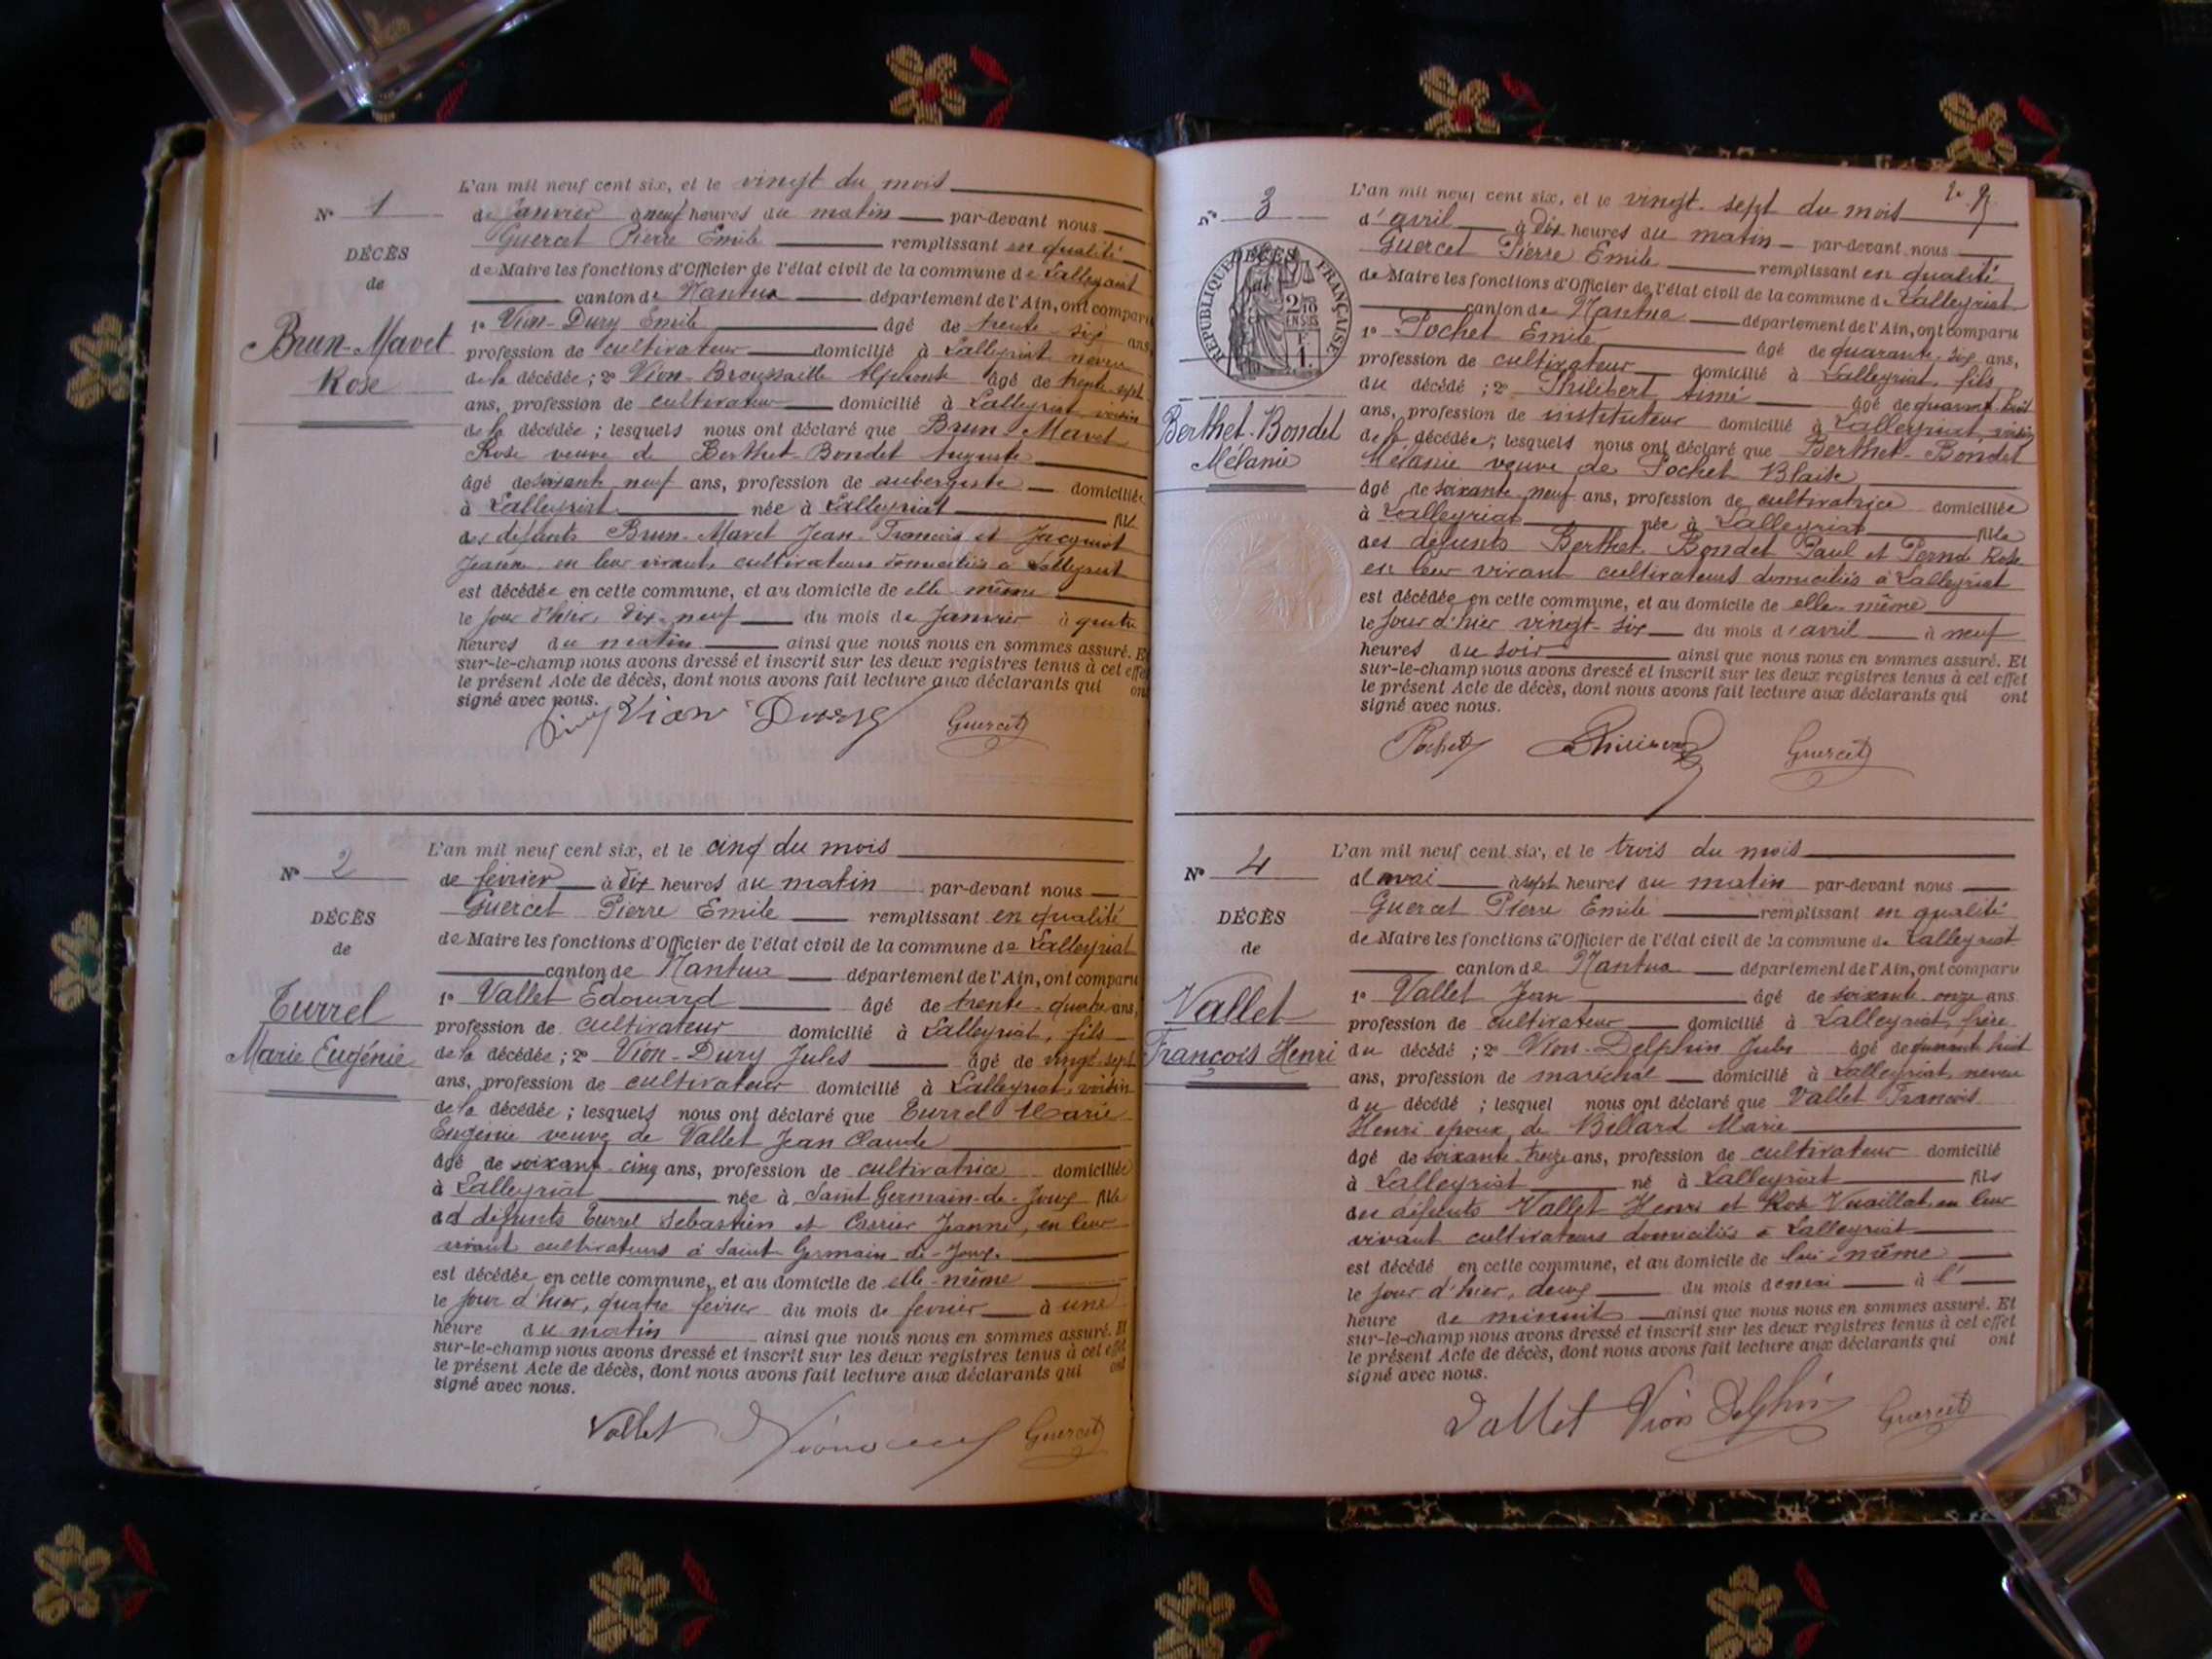 L'an mil neuf cent six, et le vingt du mois
N° 1
de Janvier à neuf heures du matin par-devant nous
Guercet Pierre Emile remplissant en qualité
DÉCÈS
de Maire les fonctions d'Officier de l'état civil de la commune de Lalleyriat
de
canton de Nantua département de l'Ain, ont comparu
1° Vion-Dury Emile âgé de trente-six ans
Brun-Mavet
profession de cultivateur domicilié à Lalleyriat neveu
Rose
de la décédée ; 2° Vion-Broussaille Alphonse âgé de trente sept
ans, profession de cultivateur domicilié à Lalleyriat, voisin
de la décédée ; lesquels nous ont déclaré que Brun-Mavet
Rose veuve de Berthet-Bondet Auguste
âgé de soixante neuf ans, profession de aubergiste domiciliée
à Lalleyriat née à Lalleyriat fille
des défunts Brun-Mavet Jean-François et Jacquiot
Jeanne en leur vivant, cultivateurs domiciliés à Lalleyriat
est décédée en cette commune, et au domicile de elle-même
le jour d'hier, dix-neuf du mois de Janvier à quatre
heures du matin ainsi que nous nous en sommes assuré. Et
sur-le-champ nous avons dressé et inscrit sur les deux registres tenus à cet effet
le présent Acte de décès, dont nous avons fait lecture aux déclarants qui ont
signé avec nous.
Vion Dury Guercet
L'an mil neuf cent six, et le cinq du mois
N° 2
de février à dix heures du matin par-devant nous
Guercet Pierre Emile remplissant en qualité
DÉCÈS
de Maire les fonctions d'Officier de l'état civil de la commune de Lalleyriat
de
canton de Nantua département de l'Ain, ont comparu
1° Vallet Edouard âgé de trente-quatre ans,
Turrel
profession de cultivateur domicilié à Lalleyriat, fils
Marie Eugénie
de la décédée ; 2° Vion-Dury Jules âgé de vingt-sept
ans, profession de cultivateur domicilié à Lalleyriat, voisin
de la décédée ; lesquels nous ont déclaré que Turrel Marie
Eugénie veuve de Vallet Jean Claude
âgé de soixante-cinq ans, profession de cultivatrice domiciliée
à Lalleyriat née à Saint-Germain-de-Joux fille
des défunts Turrel Sebastien et Carrier Jeanne, en leur
vivant cultivateurs à Saint-Germain-de-Joux.
est décédée en cette commune, et au domicile de elle-même
le jour d'hier, quatre février du mois de février à une
heure du matin ainsi que nous nous en sommes assuré. Et
sur-le-champ nous avons dressé et inscrit sur les deux registres tenus à cet effet
le présent Acte de décès, dont nous avons fait lecture aux déclarants qui ont
signé avec nous.
Vallet Guercet
L'an mil neuf cent six, et le vingt-sept du mois
N° 3
d'avril à dix heures du matin par-devant nous
Guercet Pierre Emile remplissant en qualité
DÉCÈS
RÉPUBLIQUE FRANÇAISE
de Maire les fonctions d'Officier de l'état civil de la commune de Lalleyriat
canton de Nantua département de l'Ain, ont comparu
1° Pochet Emile âgé de quarante-six ans,
profession de cultivateur domicilié à Lalleyriat, fils
du décédé ; 2° Philibert Aimé âgé de quarante-huit
Berthet-Bondet
ans, profession de instituteur domicilié à Lalleyriat, voisin
Mélanie
de la décédée ; lesquels nous ont déclaré que Berthet-Bondet
Mélanie veuve de Pochet Blaise
âgé de soixante neuf ans, profession de cultivatrice domiciliée
à Lalleyriat née à Lalleyriat fille
des défunts Berthet-Bondet Paul et Perna Rose
en leur vivant cultivateurs domiciliés à Lalleyriat
est décédée en cette commune, et au domicile de elle-même
le jour d'hier vingt-six du mois d'avril à neuf
heures du soir ainsi que nous nous en sommes assuré. Et
sur-le-champ nous avons dressé et inscrit sur les deux registres tenus à cet effet
le présent Acte de décès, dont nous avons fait lecture aux déclarants qui ont
signé avec nous.
Pochet Guercet
L'an mil neuf cent six, et le trois du mois
N° 4
de mai à sept heures du matin par-devant nous
Guercet Pierre Emile remplissant en qualité
DÉCÈS
de Maire les fonctions d'Officier de l'état civil de la commune de Lalleyriat
de
canton de Nantua département de l'Ain, ont comparu
1° Vallet Jean âgé de soixante-onze ans
Vallet
profession de cultivateur domicilié à Lalleyriat, frère
François Henri
du décédé ; 2° Vion-Delphin Jules âgé de quarante huit
ans, profession de maréchal domicilié à Lalleyriat, neveu
du décédé ; lesquel nous ont déclaré que Vallet François
Henri époux de Billard Marie
âgé de soixante treize ans, profession de cultivateur domicilié
à Lalleyriat né à Lalleyriat fils
des défunts Vallet Henri et Rose Vuaillat, en leur
vivant cultivateurs domiciliés à Lalleyriat
est décédé en cette commune, et au domicile de lui-même
le jour d'hier, deux du mois de mai à l'
heure de minuit ainsi que nous nous en sommes assuré. Et
sur-le-champ nous avons dressé et inscrit sur les deux registres tenus à cet effet
le présent Acte de décès, dont nous avons fait lecture aux déclarants qui ont
signé avec nous.
Vallet Vion Delphin Guercet